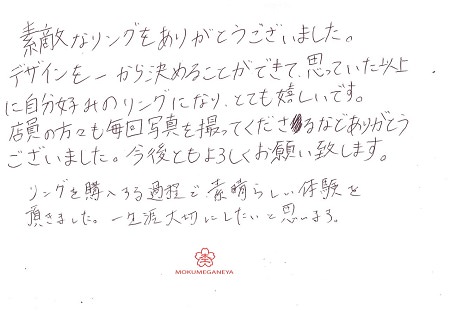 素敵なリングをありがとうございました。
デザインを一から決めることができて、思っていた以上
に自分好みのリングになり、とても嬉しいです。
店員の方々も毎回写真を撮ってくださるなどありがとう
ございました。今後ともよろしくお願い致します。
リングを購入する過程で素晴らしい体験を
頂きました。一生涯大切にしたいと思います。
MOKUMEGANEYA